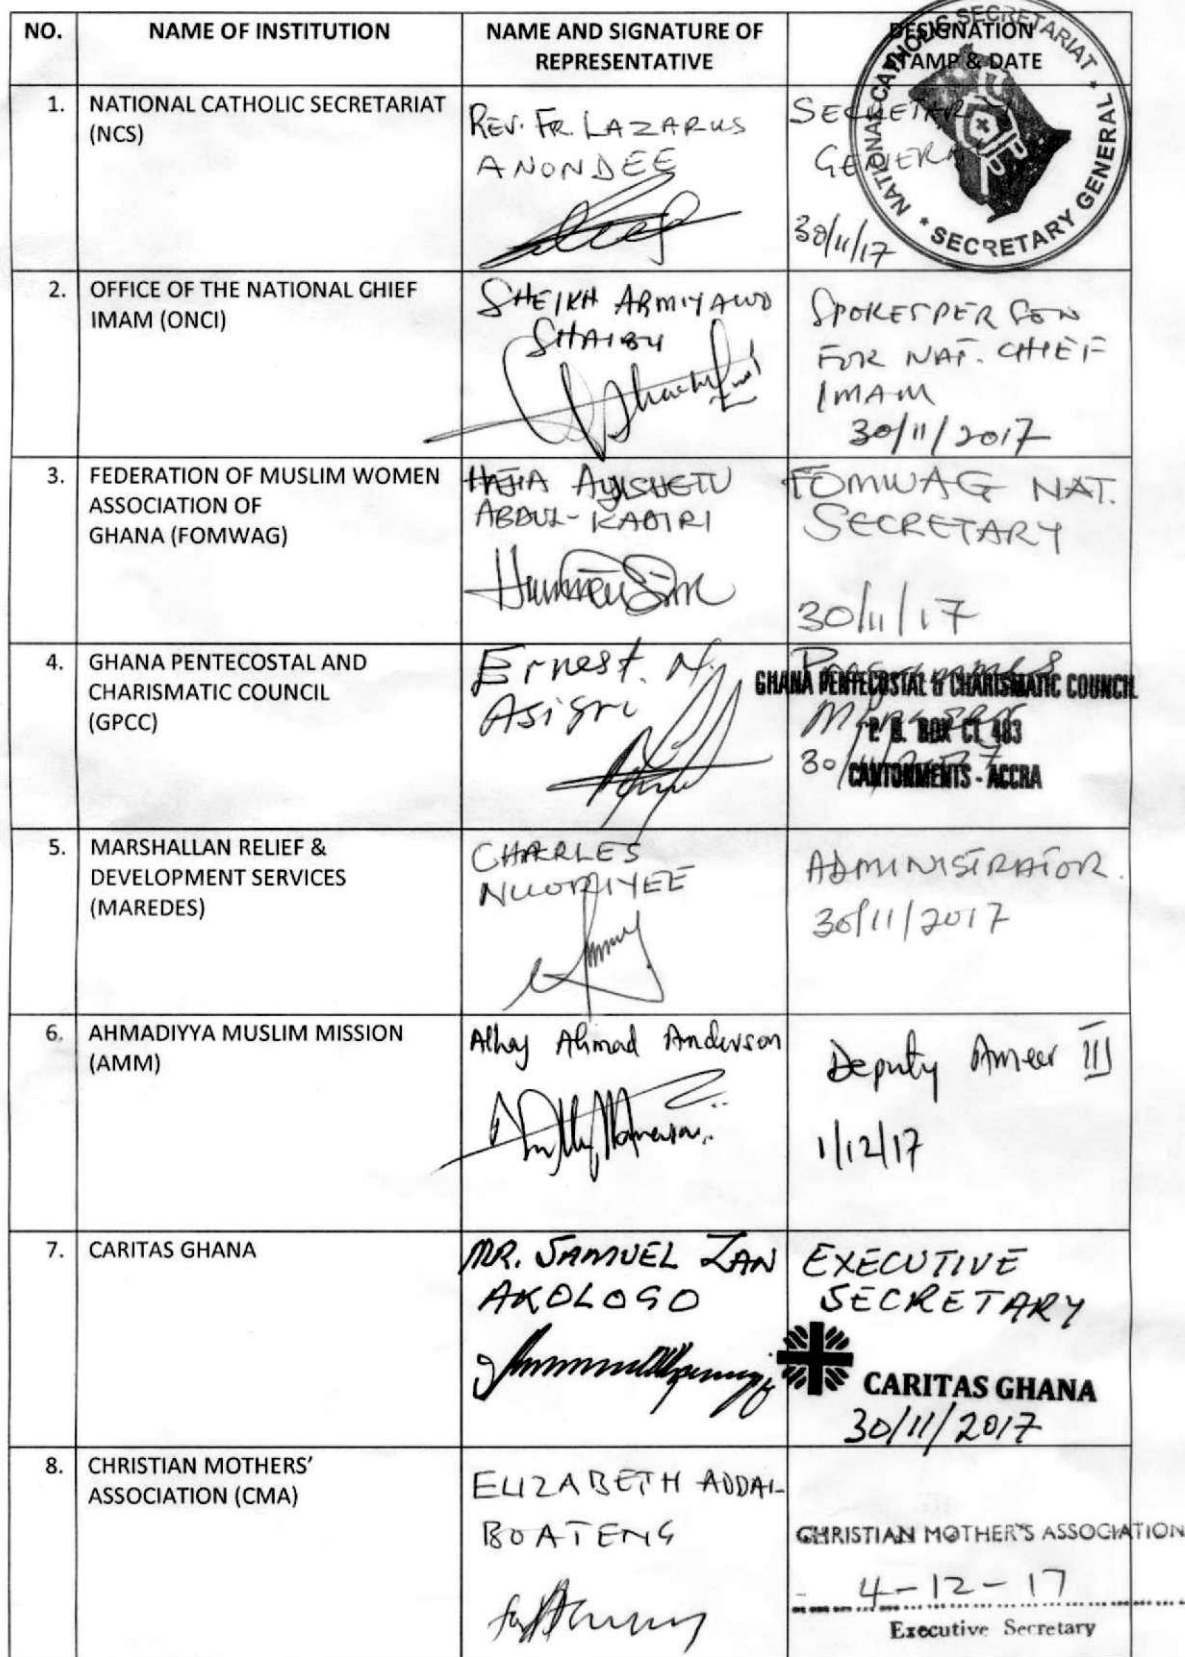 NO.
NAME OF INSTITUTION
NAME AND SIGNATURE OF
REPRESENTATIVE
DESIGNATION
STAMP & DATE
1.
NATIONAL CATHOLIC SECRETARIAT
(NCS)
REV. FR. LAZARUS
ANONDEE
SECRETARY
GENERAL
30/11/17
NATIONAL CATHOLIC SECRETARIAT
* SECRETARY GENERAL *
2.
OFFICE OF THE NATIONAL GHIEF
IMAM (ONCI)
SHEIKH ARMIYAWO
SHAIBU
SPOKESPERSON
FOR NAT. CHIEF
IMAM
30/11/2017
3.
FEDERATION OF MUSLIM WOMEN
ASSOCIATION OF
GHANA (FOMWAG)
HAJIA AYISHETU
ABDUL-KADIRI
FOMWAG NAT.
SECRETARY
30/11/17
4.
GHANA PENTECOSTAL AND
CHARISMATIC COUNCIL
(GPCC)
Ernest. N.
Asigri
Programmes
GHANA PENTECOSTAL & CHARISMATIC COUNCIL
P. O. BOX CT 483
30/11/2017
CANTONMENTS - ACCRA
5.
MARSHALLAN RELIEF &
DEVELOPMENT SERVICES
(MAREDES)
CHARLES
ADMINISTRATOR.
30/11/2017
6.
AHMADIYYA MUSLIM MISSION
(AMM)
Alhaj Ahmad Anderson
Deputy Ameer III
1/12/17
7.
CARITAS GHANA
MR. SAMUEL ZAN
AKOLOGO
EXECUTIVE
SECRETARY
CARITAS GHANA
30/11/2017
8.
CHRISTIAN MOTHERS'
ASSOCIATION (CMA)
ELIZABETH ADDAI-
BOATENG
CHRISTIAN MOTHER'S ASSOCIATION
4-12-17
Executive Secretary